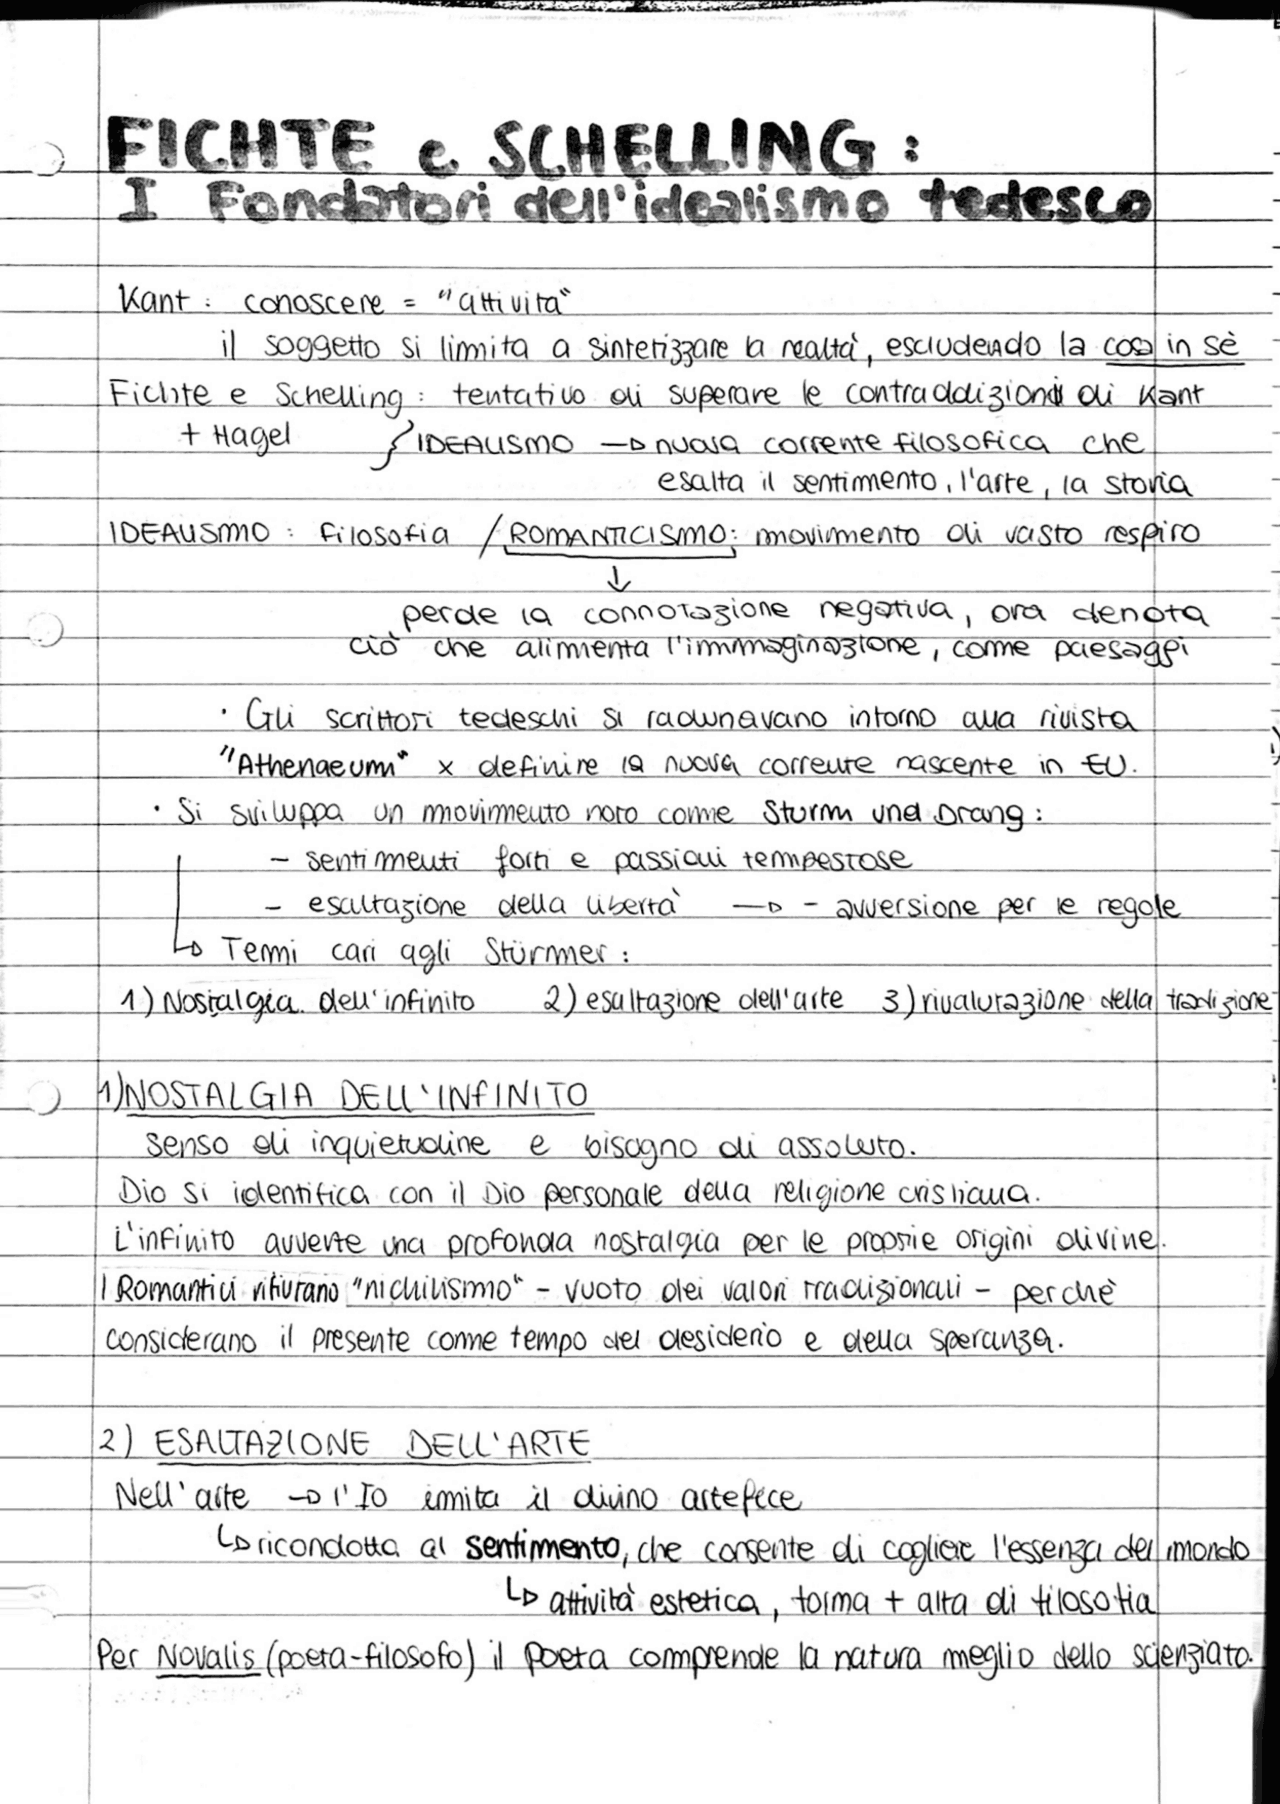 FICHTE e SCHELLING:
I Fondatori dell'idealismo tedesco
Kant: conoscere = "attività"
il soggetto si limita a sintetizzare la realtà, escludendo la cosa in sè
Fichte e Schelling: tentativo di superare le contraddizioni di Kant
+ Hagel } IDEALISMO → nuova corrente filosofica che
esalta il sentimento, l'arte, la storia
IDEALISMO: filosofia / ROMANTICISMO: movimento di vasto respiro
↓
perde la connotazione negativa, ora denota
ciò che alimenta l'immaginazione, come paesaggi
· Gli scrittori tedeschi si radunavano intorno alla rivista
"Athenaeum" x definire la nuova corrente nascente in EU.
· Si sviluppa un movimento noto come Sturm und Drang:
- sentimenti forti e passioni tempestose
- esaltazione della libertà → - avversione per le regole
↳ Temi cari agli Stürmer:
1) Nostalgia dell'infinito 2) esaltazione dell'arte 3) rivalutazione della tradizione
1) NOSTALGIA DELL'INFINITO
Senso di inquietudine e bisogno di assoluto.
Dio si identifica con il Dio personale della religione cristiana.
L'infinito avverte una profonda nostalgia per le proprie origini divine.
I Romantici rifiutano "nichilismo" - vuoto dei valori tradizionali - perchè
considerano il presente come tempo del desiderio e della speranza.
2) ESALTAZIONE DELL'ARTE
Nell'arte → l'Io imita il divino artefice
↳ ricondotta al sentimento, che consente di cogliere l'essenza del mondo
↳ attività estetica, forma + alta di filosofia
Per Novalis (poeta-filosofo) il poeta comprende la natura meglio dello scienziato.